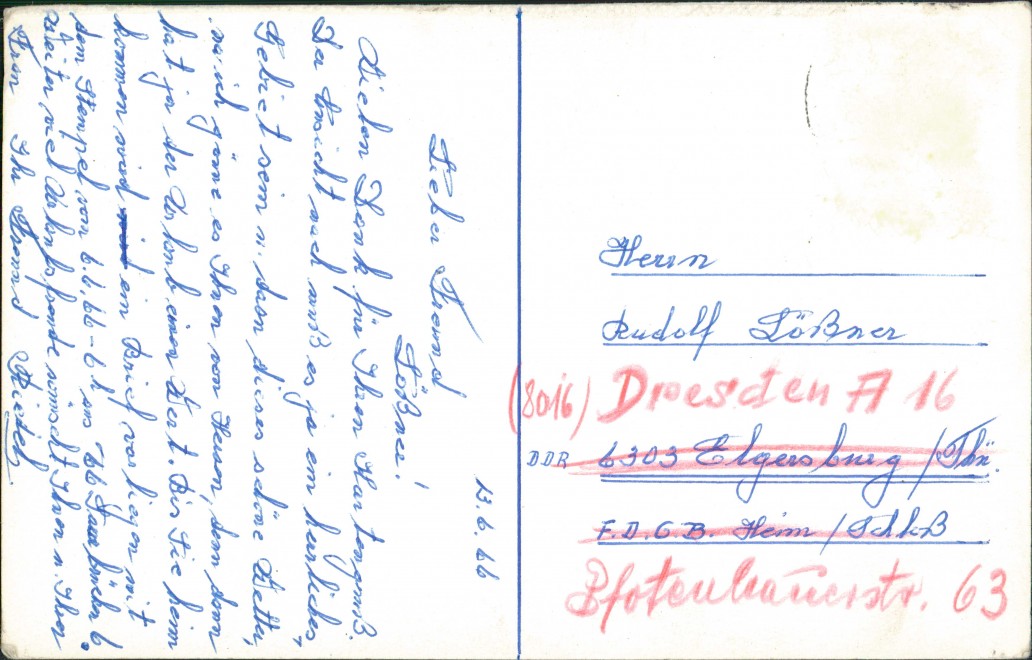 13.6.66
Lieber Freund
Lößner!
Lieben Dank für Ihren Kartengruß.
Der Ansicht nach muß es ja ein herrliches
Gebiet sein u. dann dieses schöne Wetter,
na ich gönne es Ihnen von Herzen, denn dann
hat ja der Urlaub einen Wert. Bis Sie heim
kommen wird ein Brief vorliegen mit
dem Stempel vom 6.6.66 - 6 h aus 66 Saarbrücken 6.
Weiter viel Urlaubsfreude wünscht Ihnen u. Ihrer
Frau Ihr Freund
Herrn
Rudolf Lößner
(8016) Dresden A 16
DDR 6303 Elgersburg / Thür.
F.D.G.B. Heim / Schloß
Pfotenhauerstr. 63